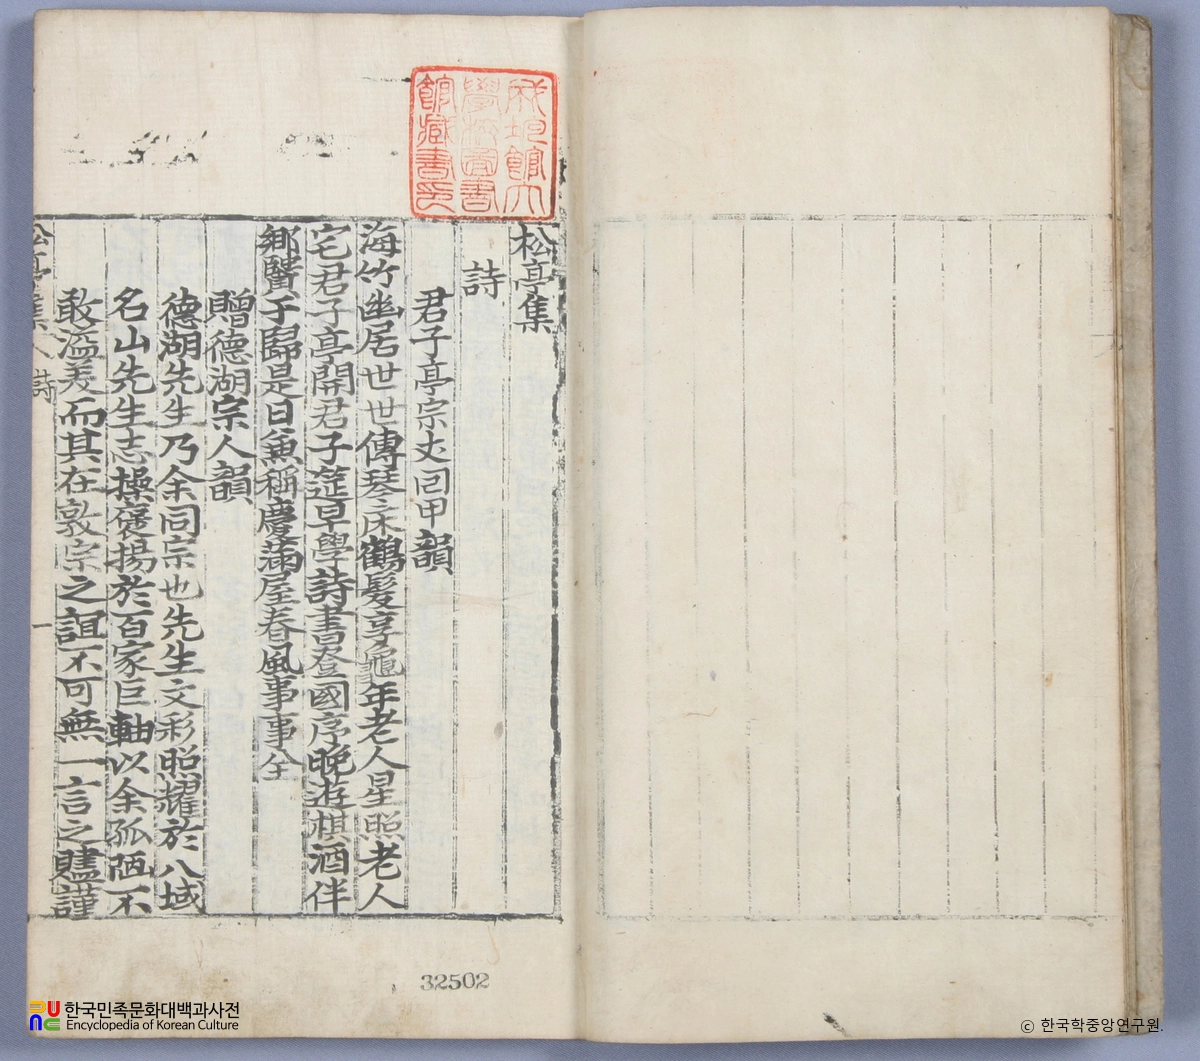 松亭集
詩
君子亭宗丈回甲韻
海竹幽居世世傳琴床鶴髮享龜年老人星照老人
宅君子亭開君子筵早學詩書登國序晩遊棋酒伴
鄉賢子歸是日兼稱慶滿屋春風事事全
贈德湖宗人韻
德湖先生乃余同宗也先生文彩照耀於八域
名山先生志操褒揚於百家巨軸以余孤陋不
敢溢美而其在敦宗之誼不可無一言之贐謹
松亭集 詩 一
成均館大
學校圖書
館藏書印
32502
한국민족문화대백과사전
Encyclopedia of Korean Culture
ⓒ 한국학중앙연구원.